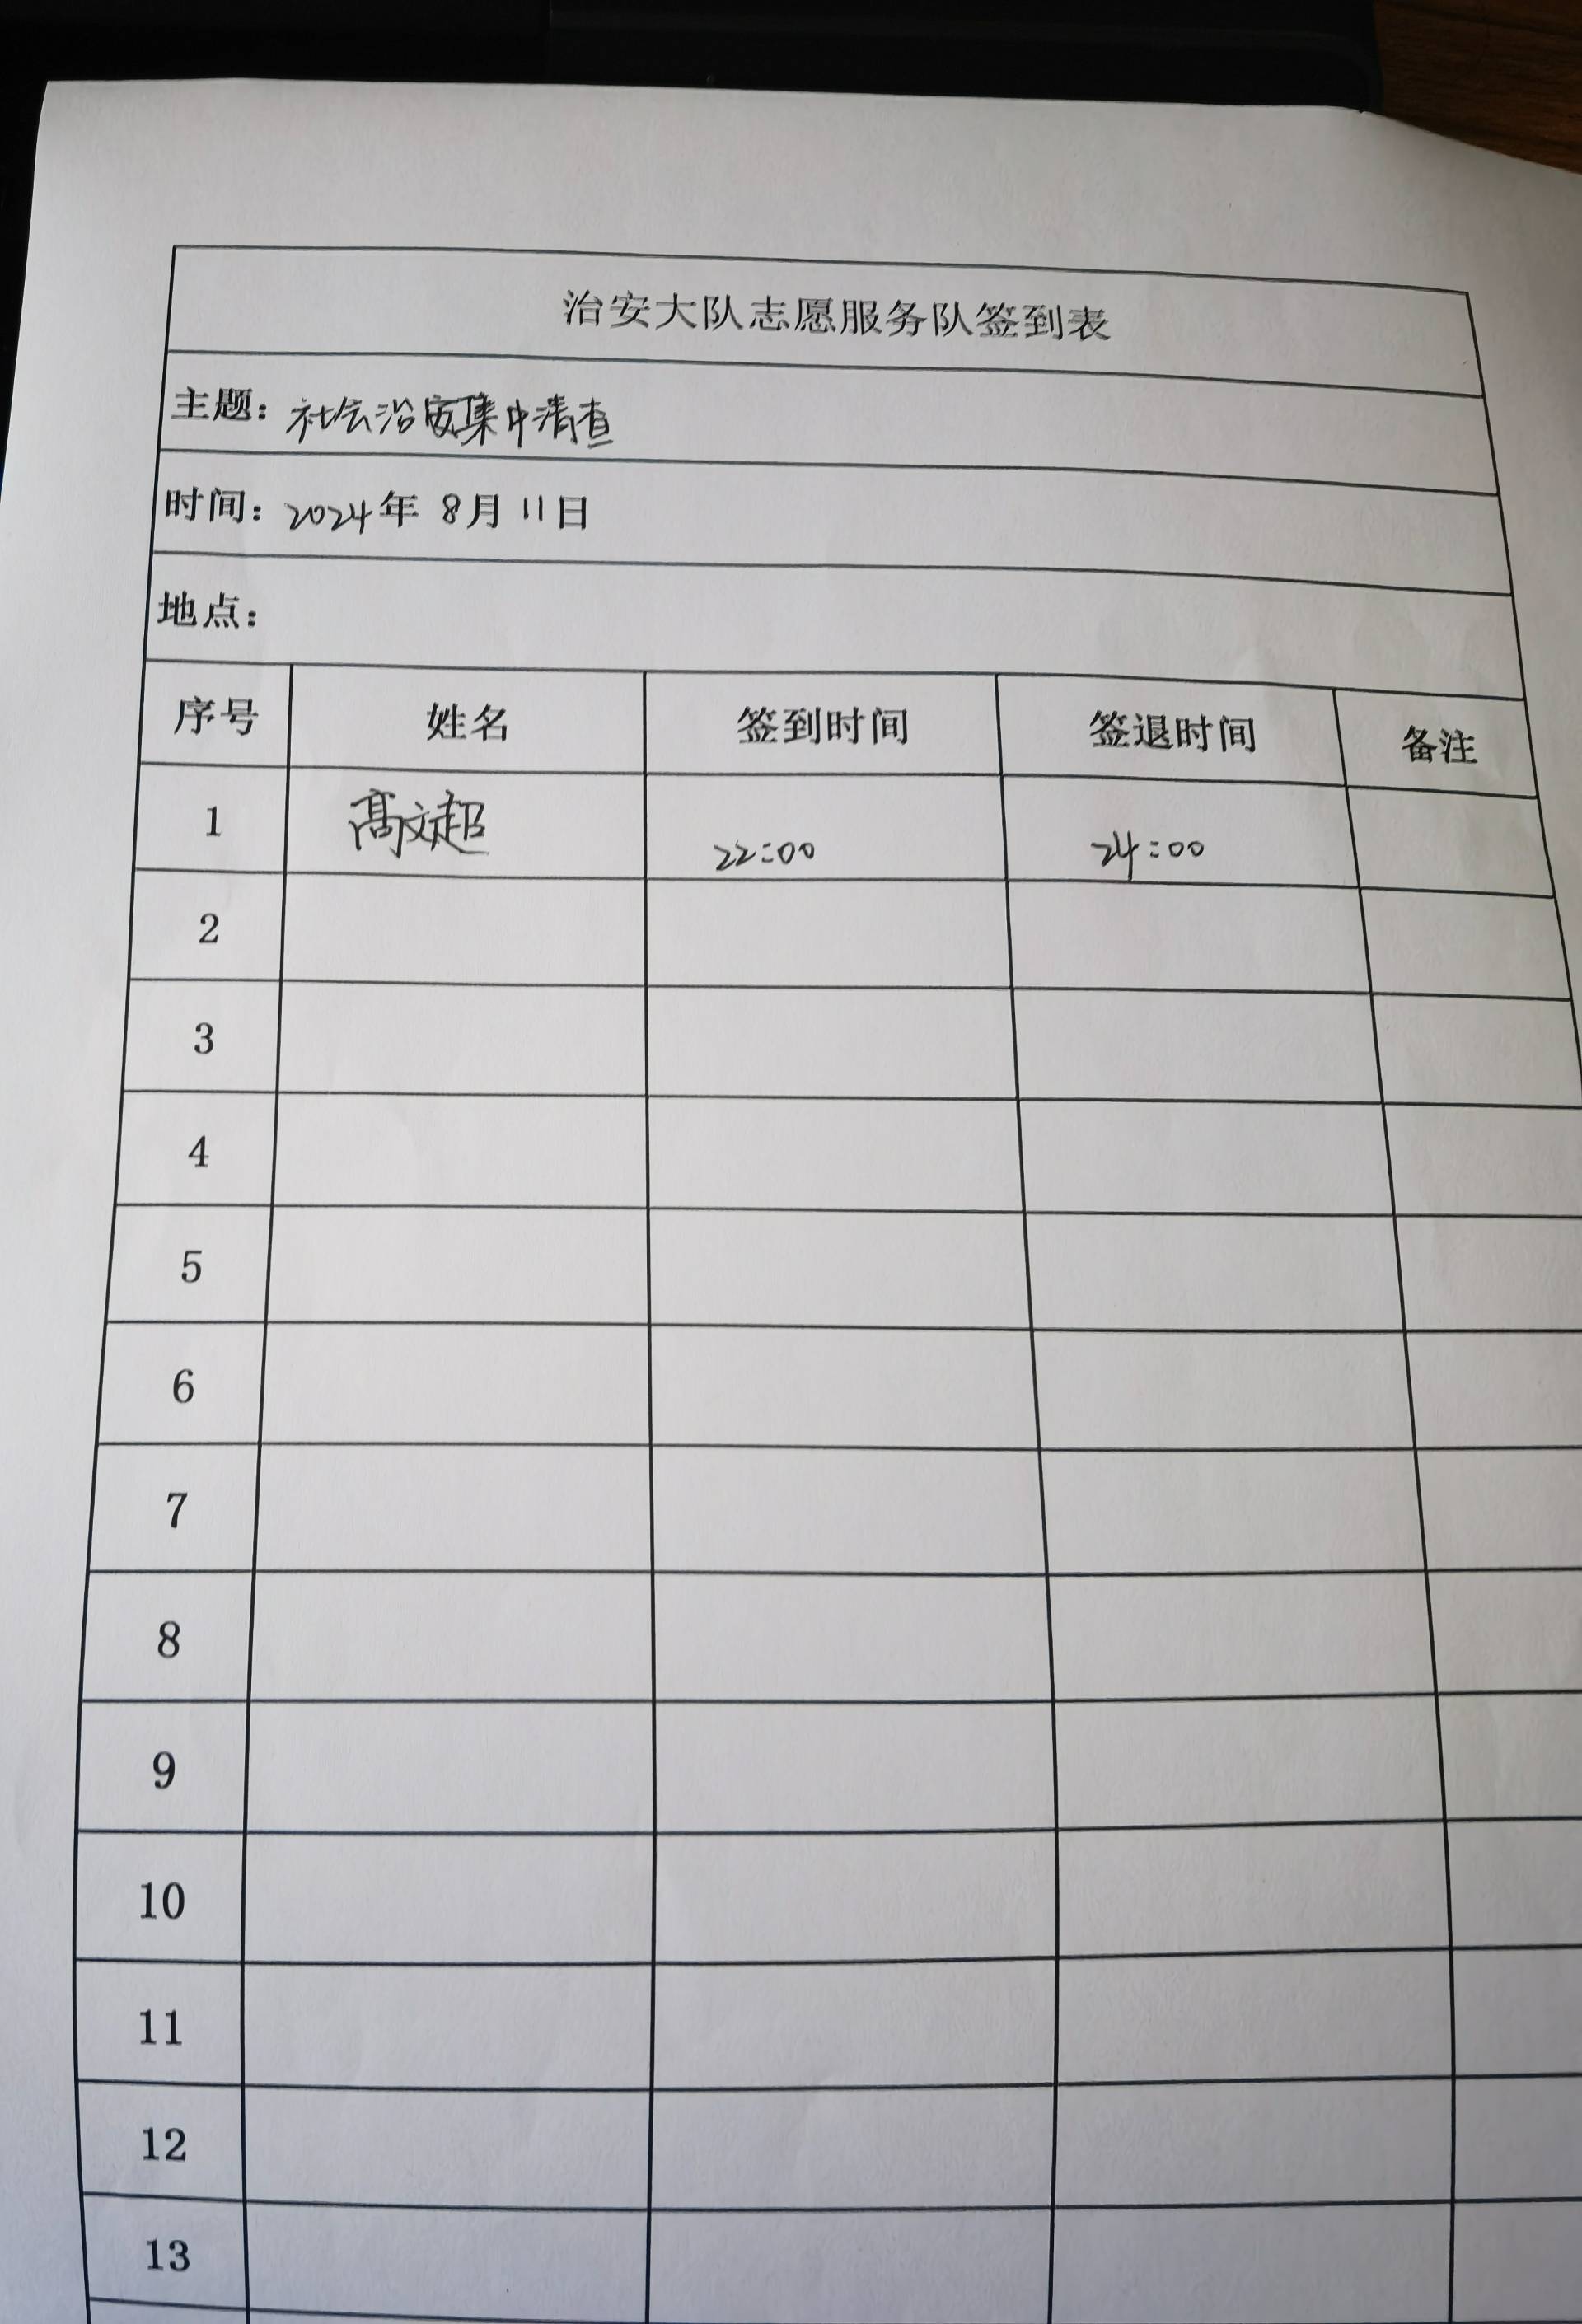 治安大队志愿服务队签到表
主题：社会治安集中清查
时间：2024年 8月 11日
地点：
序号 姓名 签到时间 签退时间 备注
1 高文超 22:00 24:00
2
3
4
5
6
7
8
9
10
11
12
13